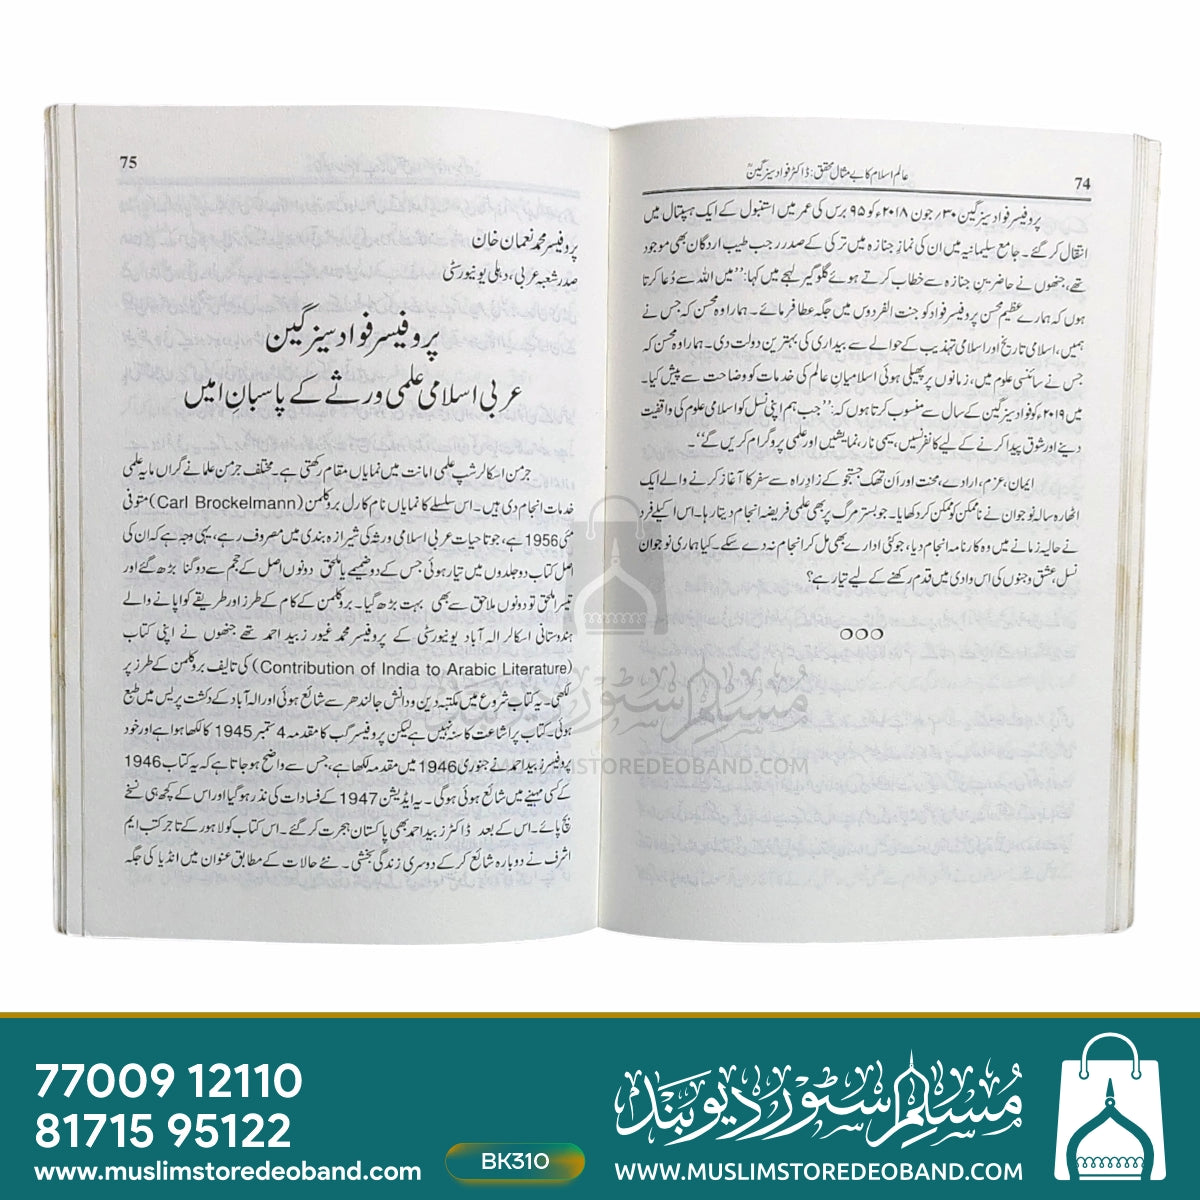 74
عالم اسلام کا بے مثال محقق: ڈاکٹر فواد سیزگینؒ
پروفیسر فواد سیزگین ۳۰؍ جون ۲۰۱۸ء کو ۹۵ برس کی عمر میں استنبول کے ایک ہسپتال میں
انتقال کر گئے۔ جامع سلیمانیہ میں ان کی نمازِ جنازہ میں ترکی کے صدر رجب طیب اردگان بھی موجود
تھے، جنھوں نے حاضرینِ جنازہ سے خطاب کرتے ہوئے گلوگیر لہجے میں کہا: ’’میں اللہ سے دُعا کرتا
ہوں کہ ہمارے عظیم محسن پروفیسر فواد کو جنت الفردوس میں جگہ عطا فرمائے۔ ہمارا وہ محسن کہ جس نے
ہمیں، اسلامی تاریخ اور اسلامی تہذیب کے حوالے سے بیداری کی بہترین دولت دی۔ ہمارا وہ محسن کہ
جس نے سائنسی علوم میں، زمانوں پر پھیلی ہوئی اسلامیانِ عالم کی خدمات کو وضاحت سے پیش کیا۔
میں ۲۰۱۹ء کو فواد سیزگین کے سال سے منسوب کرتا ہوں کہ: ’’جب ہم اپنی نسل کو اسلامی علوم کی واقفیت
دینے اور شوق پیدا کرنے کے لیے کانفرنسیں، سیمی نار، نمایشیں اور علمی پروگرام کریں گے‘‘۔
ایمان، عزم، ارادے، محنت اور اَن تھک جستجو کے زادِ راہ سے سفر کا آغاز کرنے والے ایک
اٹھارہ سالہ نوجوان نے ناممکن کو ممکن کر دکھایا۔ جو بسترِ مرگ پر بھی علمی فریضہ انجام دیتا رہا۔ اس اکیلے فرد
نے حالیہ زمانے میں وہ کارنامہ انجام دیا، جو کئی ادارے بھی مل کر انجام نہ دے سکے۔ کیا ہماری نوجوان
نسل، عشق و جنوں کی اس وادی میں قدم رکھنے کے لیے تیار ہے؟
○○○
75
پروفیسر محمد نعمان خان
صدر شعبہ عربی، دہلی یونیورسٹی
پروفیسر فواد سیزگین
عربی اسلامی علمی ورثے کے پاسبان امیں
جرمن اسکالرشپ علمی امانت میں نمایاں مقام رکھتی ہے۔ مختلف جرمن علما نے گراں مایہ علمی
خدمات انجام دی ہیں۔ اس سلسلے کا نمایاں نام کارل بروکلمن (Carl Brockelmann) متوفی
مئی 1956 ہے، جو تاحیات عربی اسلامی ورثہ کی شیرازہ بندی میں مصروف رہے، یہی وجہ ہے کہ ان کی
اصل کتاب دو جلدوں میں تیار ہوئی جس کے دو ضمیمے یا ملحق دونوں اصل کے حجم سے دوگنا بڑھ گئے اور
تیسرا ملحق تو دونوں ملاحق سے بھی بہت بڑھ گیا۔ بروکلمن کے کام کے طرز اور طریقے کو اپانے والے
ہندوستانی اسکالر الہ آباد یونیورسٹی کے پروفیسر محمد غیور زبید احمد تھے جنھوں نے اپنی کتاب
(Contribution of India to Arabic Literature) کی تالیف بروکلمن کے طرز پر
لکھی۔ یہ کتاب شروع میں مکتبہ دین و دانش جالندھر سے شائع ہوئی اور الہ آباد کے دکشت پریس میں طبع
ہوئی۔ کتاب پر اشاعت کا سنہ نہیں ہے لیکن پروفیسر گب کا مقدمہ 4 ستمبر 1945 کا لکھا ہوا ہے اور خود
پروفیسر زبید احمد نے جنوری 1946 میں مقدمہ لکھا ہے، جس سے واضح ہو جاتا ہے کہ یہ کتاب 1946
کے کسی مہینے میں شائع ہوئی ہوگی۔ یہ ایڈیشن 1947 کے فسادات کی نذر ہو گیا اور اس کے کچھ ہی نسخے
بچ پائے۔ اس کے بعد ڈاکٹر زبید احمد بھی پاکستان ہجرت کر گئے۔ اس کتاب کو لاہور کے تاجر کتب ایم
اشرف نے دوبارہ شائع کر کے دوسری زندگی بخشی۔ نئے حالات کے مطابق عنوان میں انڈیا کی جگہ
مسلم سٹور دیوبند
MUSLIMSTOREDEOBAND.COM
77009 12110
81715 95122
www.muslimstoredeoband.com
BK310
مسلم سٹور دیوبند
WWW.MUSLIMSTOREDEOBAND.COM